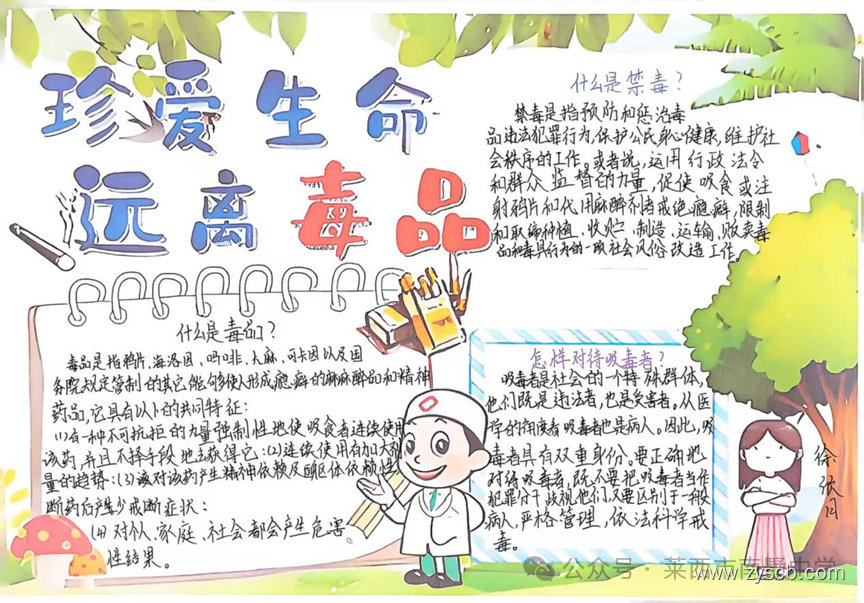 珍爱生命
远离毒品
什么是禁毒?
禁毒是指预防和惩治毒
品违法犯罪行为,保护公民身心健康,维护社
会秩序的工作。或者说,运用行政法令
和群众监督的力量,促使吸食或注
射鸦片和代用麻醉剂者戒绝瘾癖,限制
和取缔种植、收贮、制造、运输、贩卖毒
品和毒具行为的一项社会风俗改造工作。
什么是毒品?
毒品是指鸦片、海洛因、吗啡、大麻、可卡因以及国
务院规定管制的其它能够使人形成瘾癖的麻醉品和精神
药品,它具有以下的共同特征:
(1)有一种不可抗拒的力量强制性地使吸食者连续使用
该药,并且不择手段地去获得它;(2)连续使用有加大
量的趋势;(3)该对该药产生精神依赖及躯体依赖性
断药后产生少戒断症状:
(4)对个人、家庭、社会都会产生危害
性结果。
怎样对待吸毒者?
吸毒者是社会的一个特殊群体,
他们既是违法者,也是受害者。从医
学的角度看吸毒者也是病人。因此,吸
毒者具有双重身份。要正确地
对待吸毒者,既不要把吸毒者当作
犯罪分子歧视他们,又要区别于一般
病人,严格管理,依法科学戒
毒。
徐欣月
公众号·莱西市南墅中学
www.zyscb.com